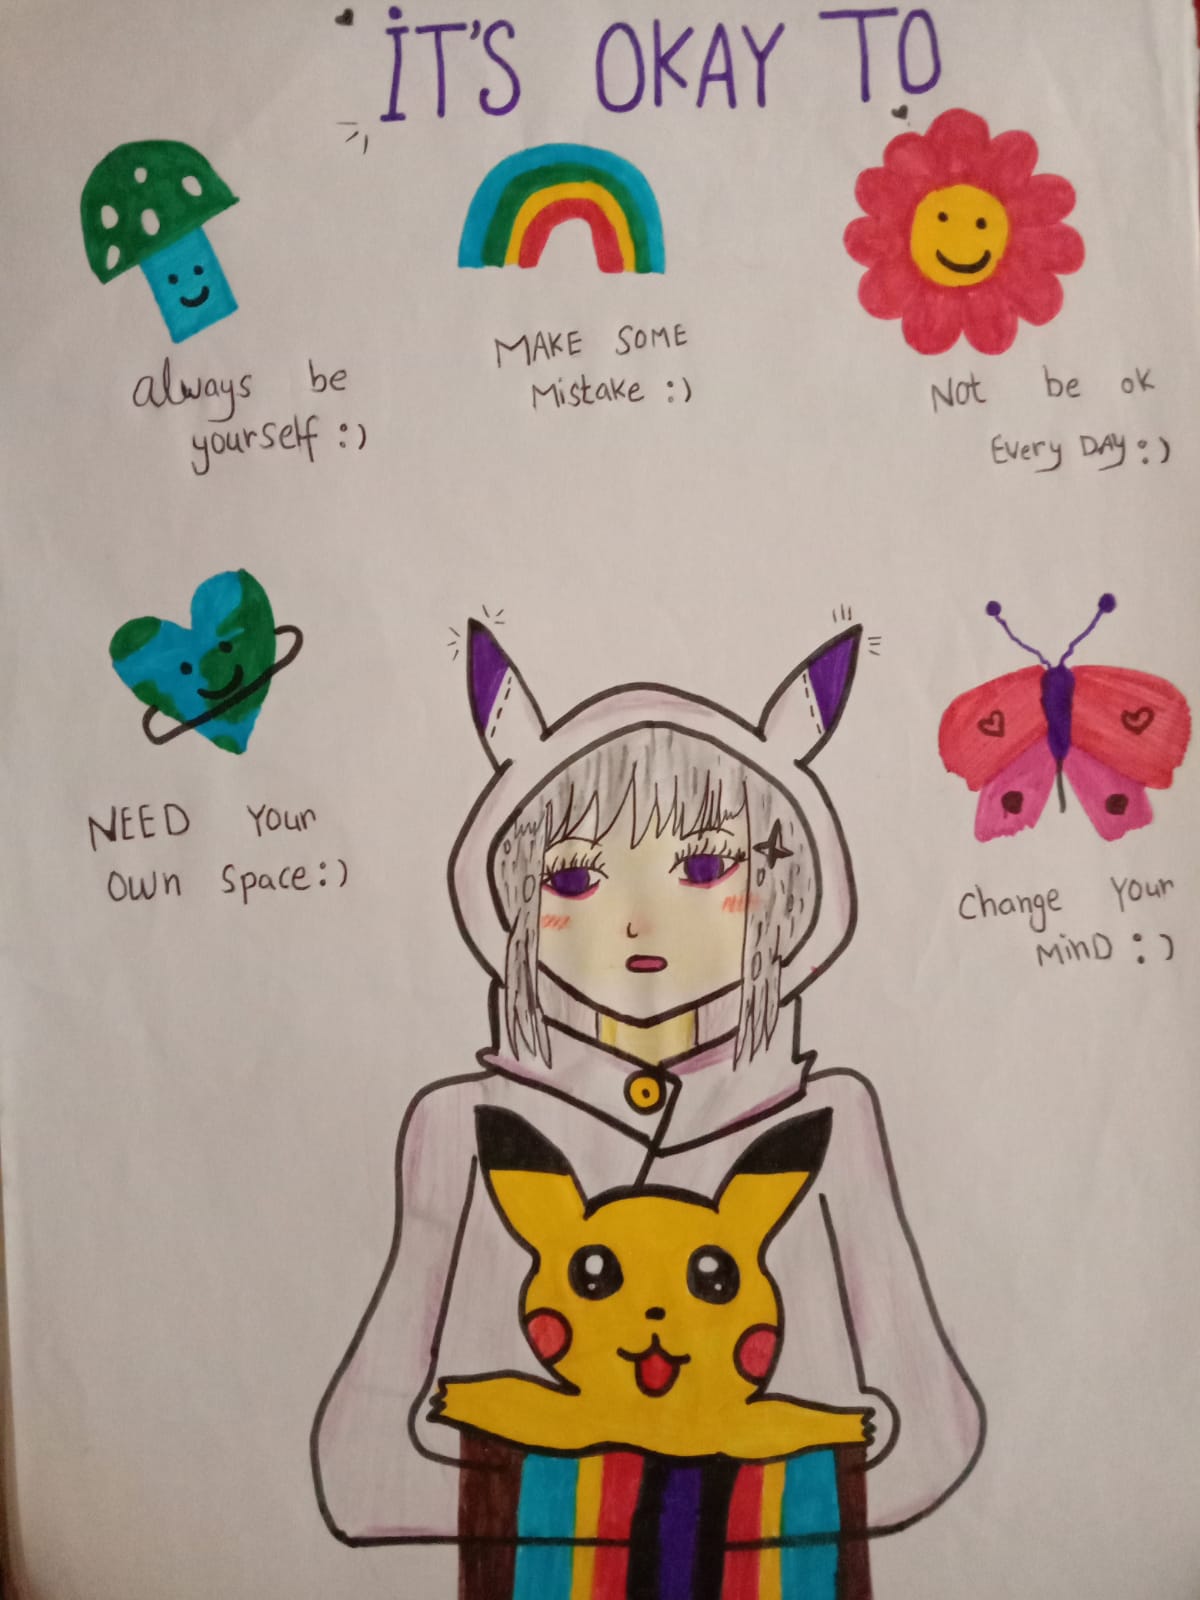 İT'S OKAY TO
always be
yourself :)
MAKE SOME
Mistake :)
Not be ok
Every DAY :)
NEED Your
Own Space :)
Change Your
MinD :)